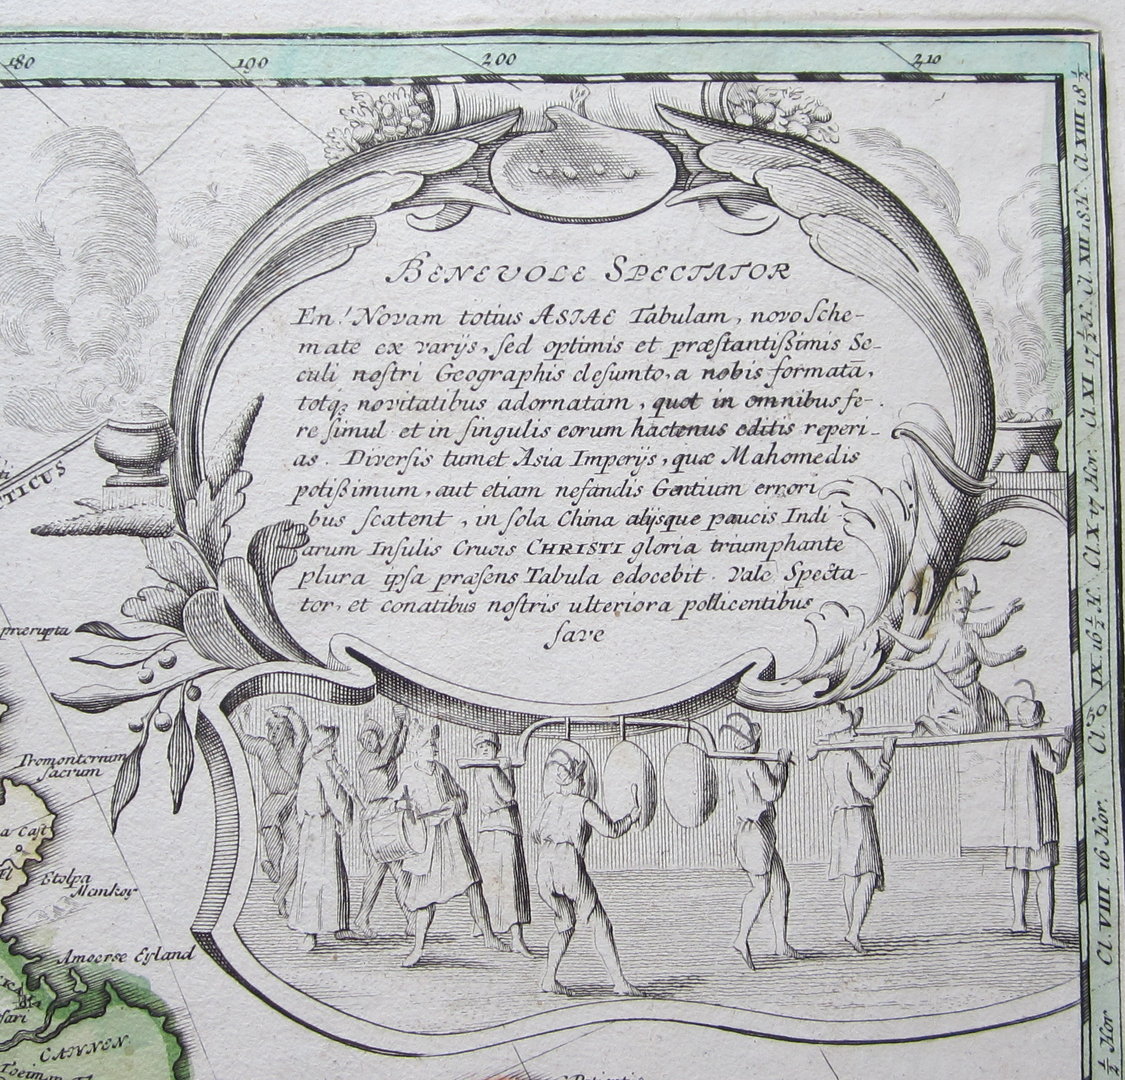 180 190 200 210
BENEVOLE SPECTATOR
En! Novam totius ASIAE Tabulam, novo sche-
mate ex varijs, sed optimis et præstantißimis Se-
culi nostri Geographis desumto, a nobis formatā,
totq; novitatibus adornatam, quot in omnibus fe-
re simul et in singulis eorum hactenus editis reperi-
as. Diversis tumet Asia Imperijs, quæ Mahomedis
potißimum, aut etiam nefandis Gentium errori
bus scatent, in sola China alijsque paucis Indi
arum Insulis Crucis CHRISTI gloria triumphante
plura ipsa præsens Tabula edocebit. Vale Specta-
tor, et conatibus nostris ulteriora pollicentibus
fave
TICUS
prærupta
Promontorium
sacrum
a Cast
Etolpa
Memkoy
Amoerse Eyland
CAYNEN
Cl. VIII 16 Hor.
IX 16 1/2 H.
Cl. X 17 Hor.
Cl. XI 17 1/2 H.
Cl. XII 18 H.
Cl. XIII 18 1/2